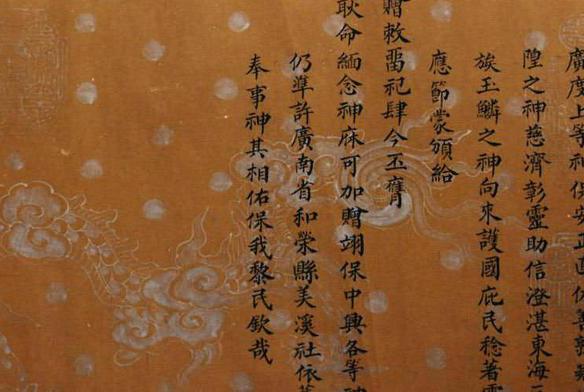 廣度上等神
隍之神慈濟彰靈助信澄湛東海
族玉鱗之神向來護國庇民稔著靈
應節蒙頒給
贈敕畱祀肆今丕膺
耿命緬念神庥可加贈翊保中興各等
仍準許廣南省和榮縣美溪社依
奉事神其相佑保我黎民欽哉